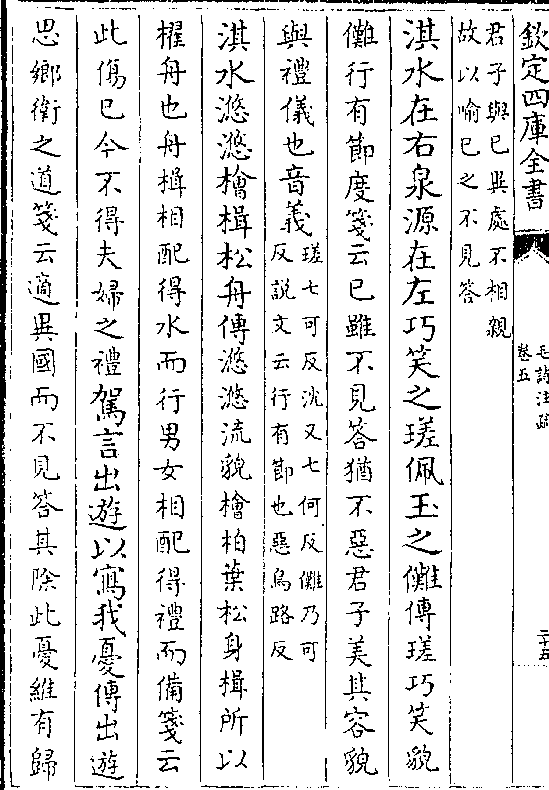 欽定四庫全書
毛詩注疏
卷五
二十五
君子與已異處不相親
故以喻已之不見答
淇水在右泉源在左巧笑之瑳佩玉之儺傳瑳巧笑貌
儺行有節度箋云已雖不見答猶不惡君子美其容貌
與禮儀也音義
瑳七可反沈又七何反儺乃可
反說文云行有節也惡烏路反
淇水滺滺檜楫松舟傳滺滺流貌檜柏葉松身楫所以
櫂舟也舟楫相配得水而行男女相配得禮而備箋云
此傷已今不得夫婦之禮駕言出遊以寫我憂傳出遊
思鄉衛之道箋云適異國而不見答其除此憂維有歸